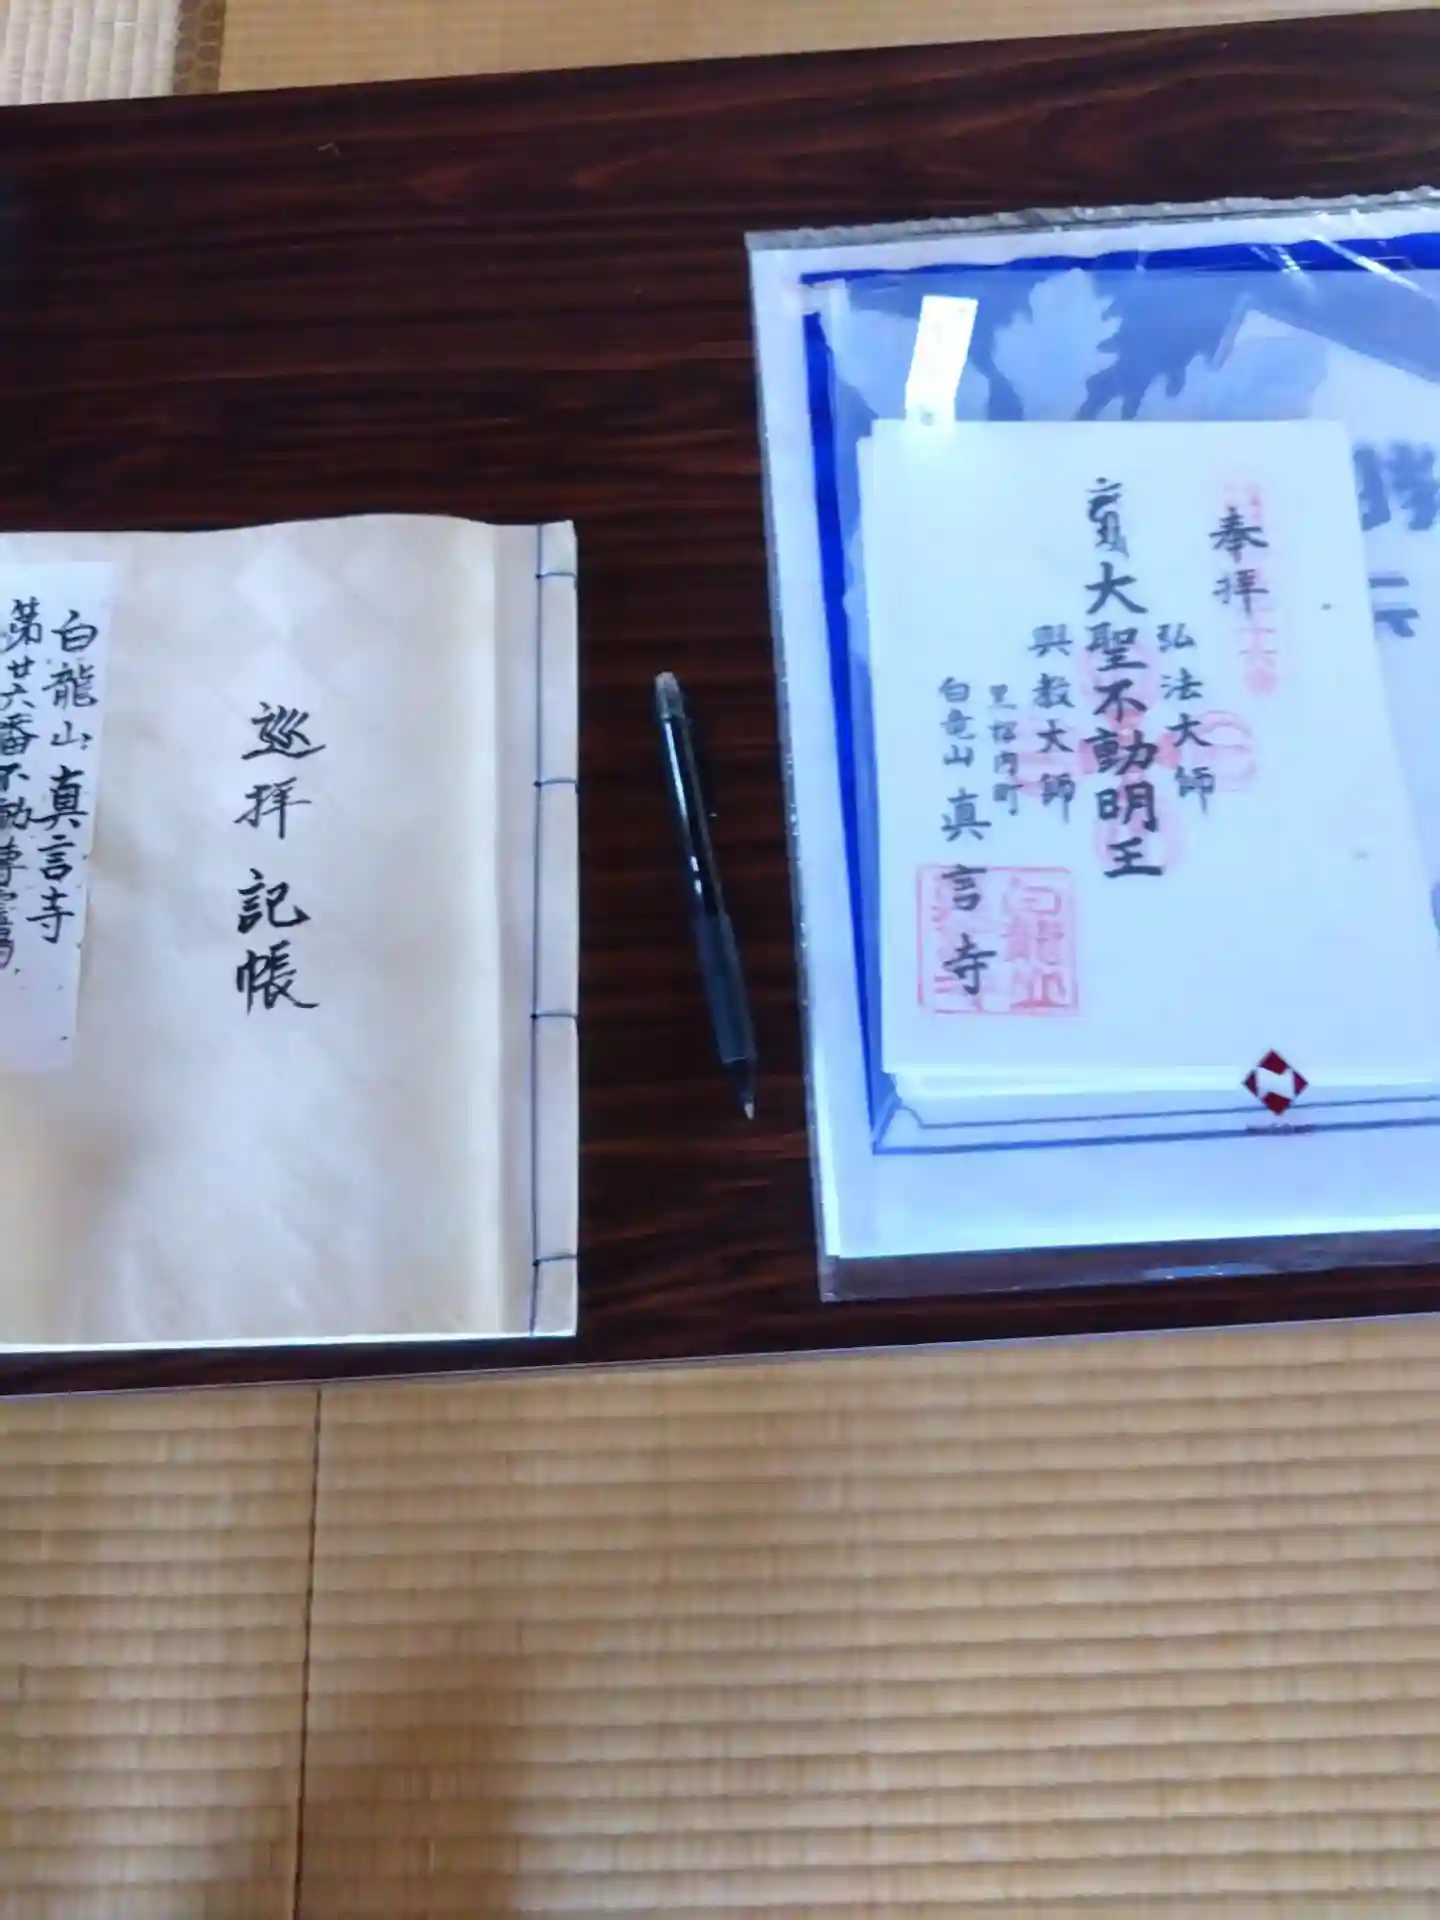 奉拝
弘法大師
大聖不動明王
興教大師
黒松内町
白竜山 真言寺
白龍山
巡拝記帳
白龍山 真言寺
第廿六番不動尊霊場